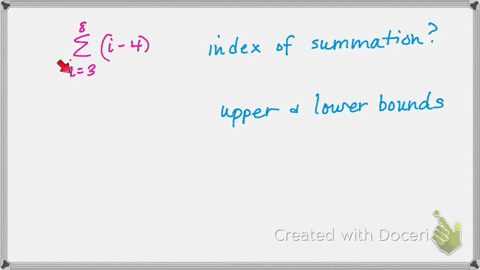 8
∑ (i-4)
i=3
index of summation?
upper & lower bounds
Created with Doceri